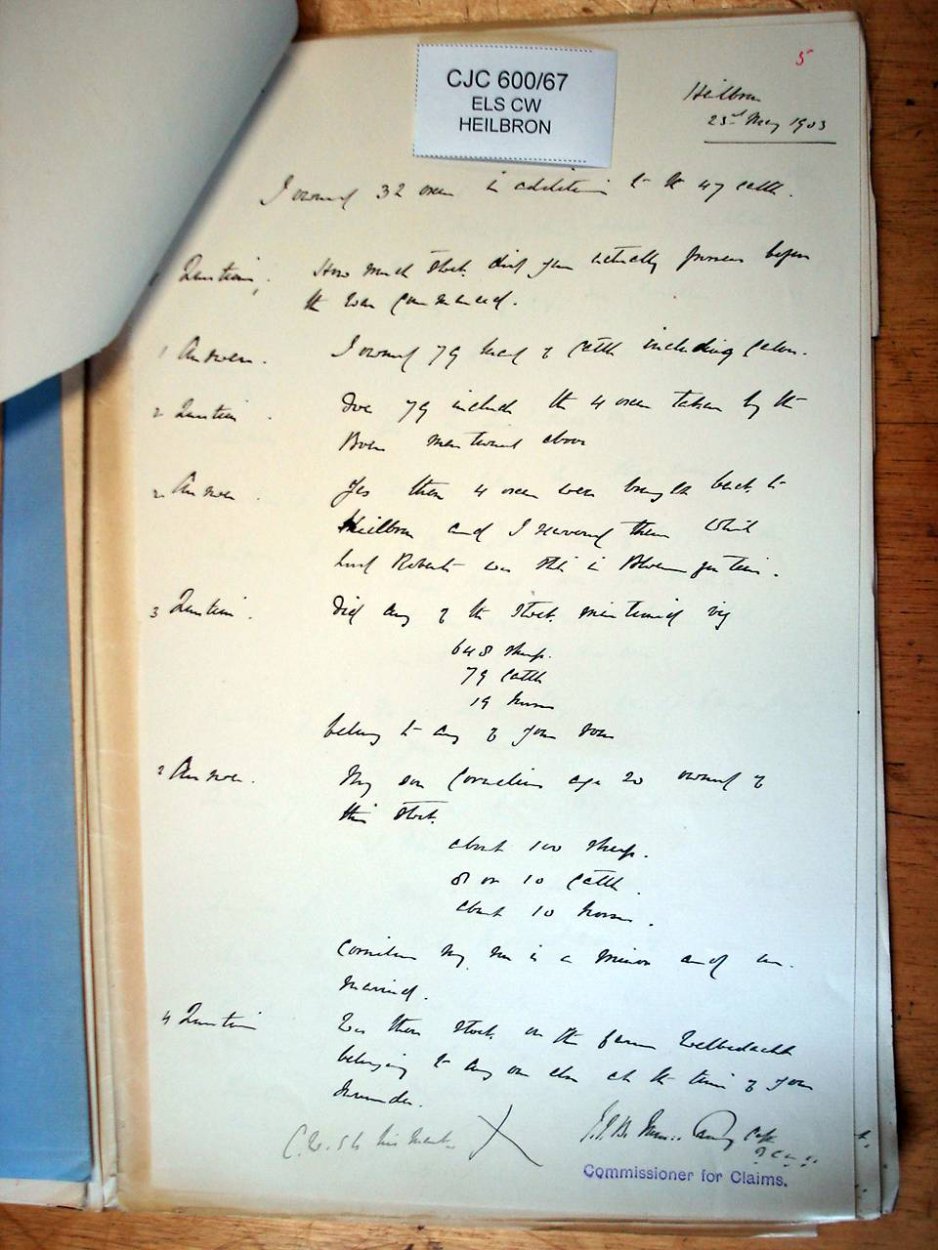 5
CJC 600/67
ELS CW
HEILBRON
Heilbron
23rd May 1903
I owned 32 oxen in addition to the 47 cattle.
Question. How much stock did you actually possess before
the war commenced.
1 Answer. I owned 79 head of cattle including calves.
2 Question. Does 79 include the 4 oxen taken by the
Boers mentioned above
2 Answer. Yes these 4 oxen were brought back to
Heilbron and I recovered them while
Lord Roberts was still in Bloemfontein.
3 Question. Did any of the stock mentioned viz
648 sheep.
79 cattle
19 horses
belong to any of your sons
3 Answer. My son Cornelius age 20 owned of
this stock.
about 100 sheep.
8 or 10 cattle.
about 10 horses.
Cornelius my son is a minor and un-
married.
4 Question Was there stock on the farm Welbedacht
belonging to any one else at the time of your
surrender.
C.W. Els his mark X
Capt
Commissioner for Claims.